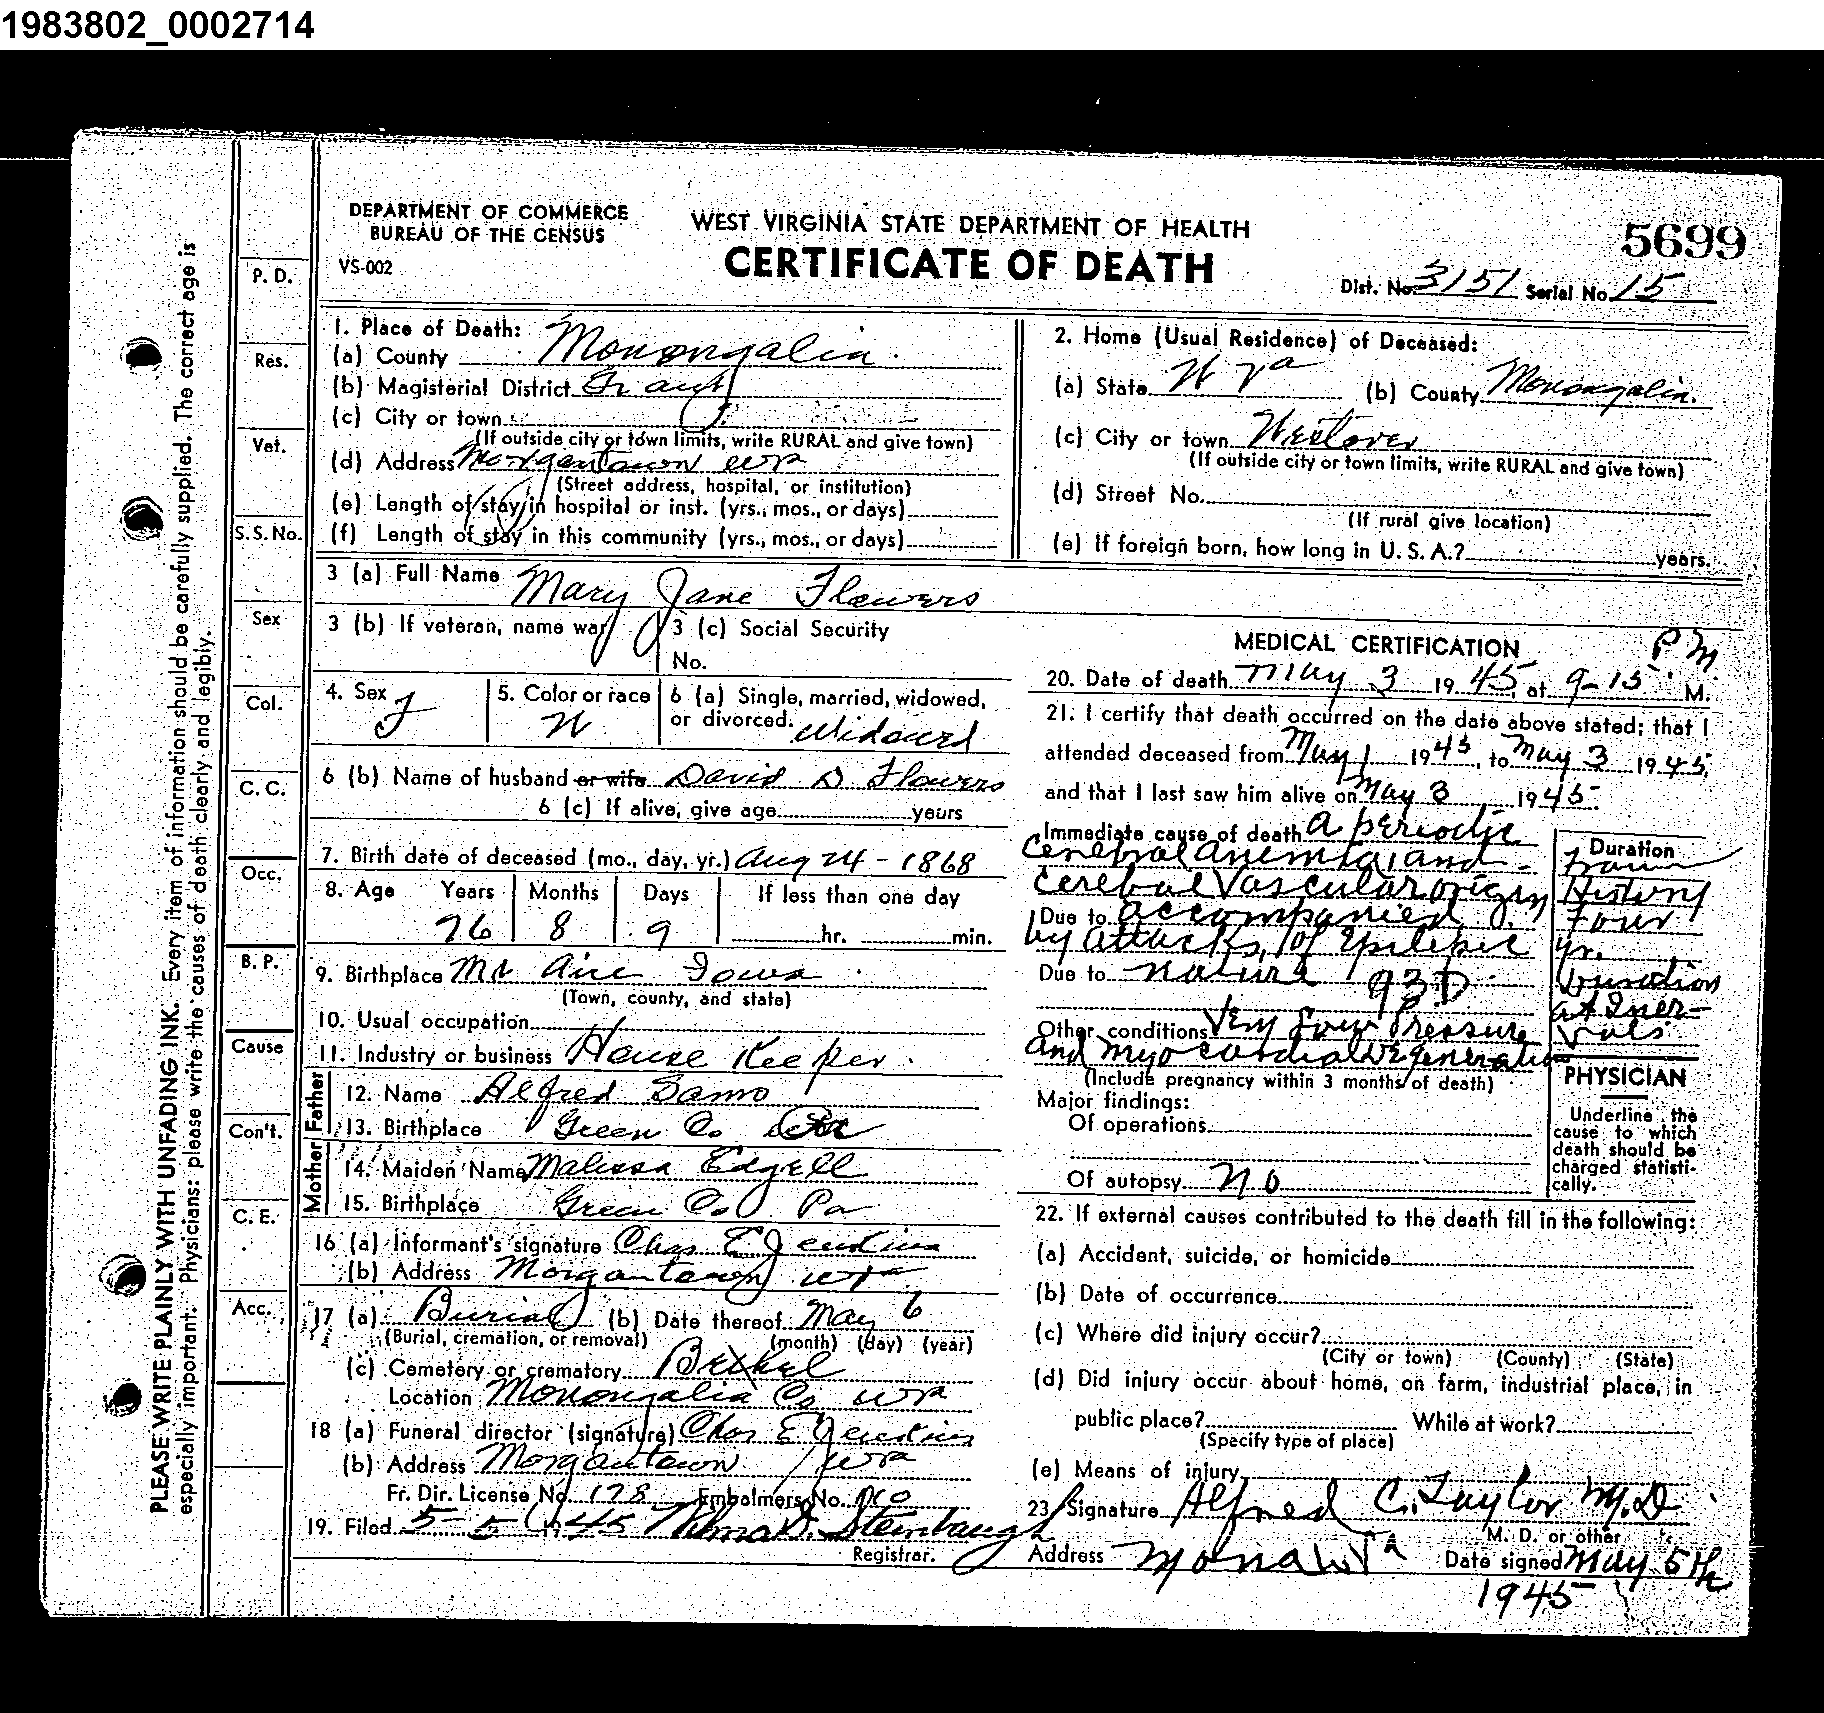 1983802_0002714
DEPARTMENT OF COMMERCE
BUREAU OF THE CENSUS
VS-002
WEST VIRGINIA STATE DEPARTMENT OF HEALTH
CERTIFICATE OF DEATH
5699
Dist. No. 3151 Serial No. 15
PLEASE WRITE PLAINLY WITH UNFADING INK. Every item of information should be carefully supplied. The correct age is
especially important. Physicians: please write the causes of death clearly and legibly.
P. D.
Res.
Vet.
S. S. No.
Sex
Col.
C. C.
Occ.
B. P.
Cause
Con't.
C. E.
Acc.
1. Place of Death:
(a) County Monongalia
(b) Magisterial District Grant
(c) City or town
(If outside city or town limits, write RURAL and give town)
(d) Address Morgantown WVa
(Street address, hospital, or institution)
(e) Length of stay in hospital or inst. (yrs., mos., or days)
(f) Length of stay in this community (yrs., mos., or days)
2. Home (Usual Residence) of Deceased:
(a) State W Va (b) County Monongalia
(c) City or town Westover
(If outside city or town limits, write RURAL and give town)
(d) Street No.
(If rural give location)
(e) If foreign born, how long in U. S. A.? years.
3 (a) Full Name Mary Jane Flowers
3 (b) If veteran, name war
3 (c) Social Security
No.
4. Sex F
5. Color or race W
6 (a) Single, married, widowed,
or divorced. Widowed
6 (b) Name of husband or wife David D Flowers
6 (c) If alive, give age years
7. Birth date of deceased (mo., day, yr.) Aug 24 - 1868
8. Age Years Months Days If less than one day
76 8 9 hr. min.
9. Birthplace Mt Aire Iowa
(Town, county, and state)
10. Usual occupation
11. Industry or business House Keeper
Father
12. Name Alfred Samo
13. Birthplace Green Co Pa
Mother
14. Maiden Name Malissa Edgell
15. Birthplace Green Co Pa
16 (a) Informant's signature Chas E Jenkins
(b) Address Morgantown WVa
17 (a) Burial (b) Date thereof May 6
(Burial, cremation, or removal) (month) (day) (year)
(c) Cemetery or crematory Bethel
Location Monongalia Co WVa
18 (a) Funeral director (signature) Chas E Jenkins
(b) Address Morgantown WVa
Fr. Dir. License No. 178 Embalmers No.
19. Filed 5-5 1945 Wilma D. Steinbaugh
Registrar.
MEDICAL CERTIFICATION
20. Date of death May 3 1945, at 9-15 P M. M.
21. I certify that death occurred on the date above stated; that I
attended deceased from May 1 1945, to May 3 1945,
and that I last saw him alive on May 3 1945.
Immediate cause of death A periodic
Cerebral anemia, and
Cerebral Vascular origin
Due to accompanied
by attacks, of Epileptic
Due to nature 93D
Other conditions Very Low Pressure
and myocardial degeneration
(Include pregnancy within 3 months of death)
Duration
from
History
Four
yr.
Duration
at Inter-
vals
Major findings:
Of operations
Of autopsy No
PHYSICIAN
Underline the
cause to which
death should be
charged statisti-
cally.
22. If external causes contributed to the death fill in the following:
(a) Accident, suicide, or homicide
(b) Date of occurrence
(c) Where did injury occur?
(City or town) (County) (State)
(d) Did injury occur about home, on farm, industrial place, in
public place? While at work?
(Specify type of place)
(e) Means of injury
23. Signature Alfred C. Taylor M.D.
M. D. or other
Address Mona WVa Date signed May 5th
1945